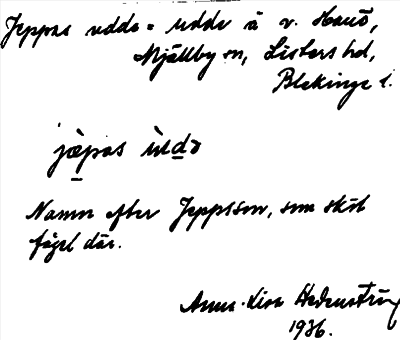 Jeppas udde = udde å v. Hanö,
Mjällby sn, Listers hd,
Blekinge l.
jèpas ùdə
Namn efter Jeppsson, som sköt
fågel där.
Anna-Lisa Hedenström
1936.